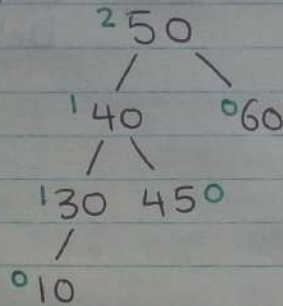 2 50
1 40 0 60
1 30 45 0
0 10